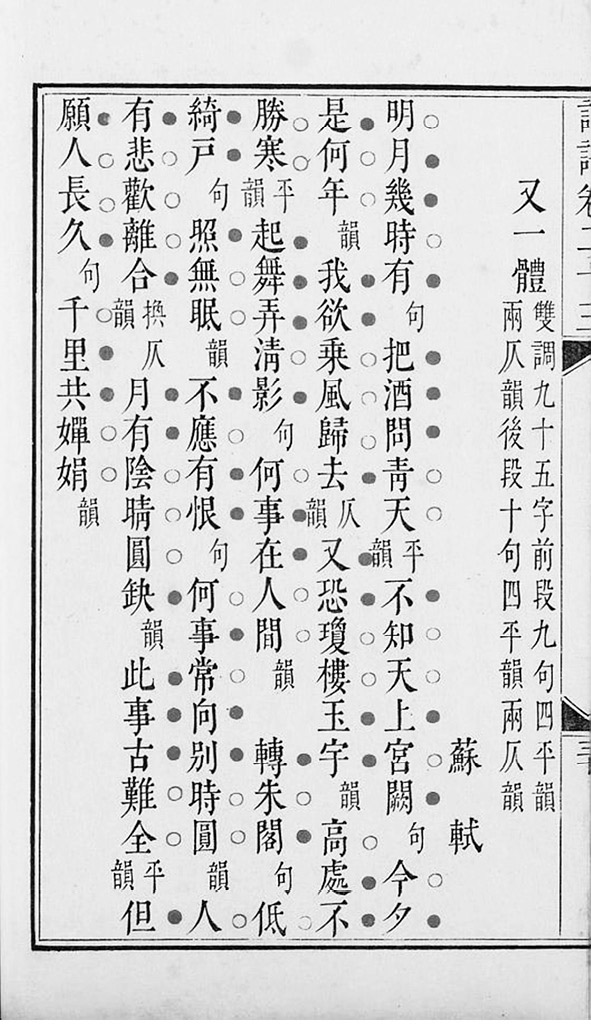 詞譜卷二十三
又一體 雙調九十五字前段九句四平韻
兩仄韻後段十句四平韻兩仄韻
蘇軾
明月幾時有句把酒問青天平韻不知天上宮闕句今夕
是何年韻我欲乘風歸去仄韻又恐瓊樓玉宇韻高處不
勝寒平韻起舞弄清影句何事在人間韻轉朱閣句低
綺戶句照無眠韻不應有恨句何事常向別時圓韻人
有悲歡離合換仄韻月有陰晴圓缺韻此事古難全平韻但
願人長久句千里共嬋娟韻